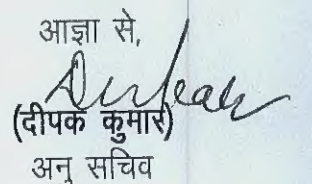 आज्ञा से,
(दीपक कुमार)
अनु सचिव